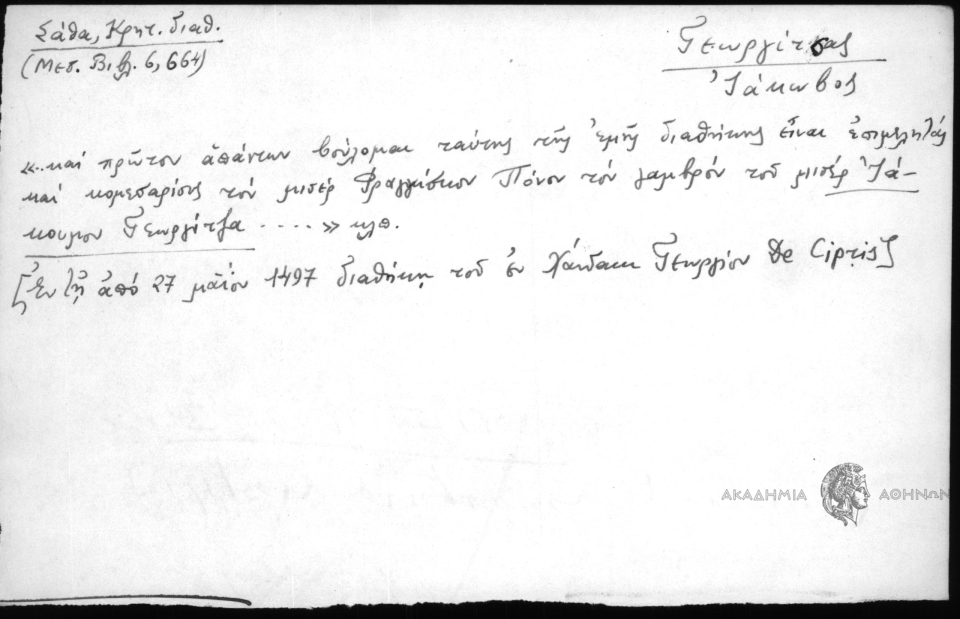 Σάθα, Κρητ. διαθ.
(Μεσ. Βιβλ. 6, 664)
Γεωργίτσας
Ἰάκωβος
«..καὶ πρῶτον ἁπάντων βούλομαι ταύτης τῆς ἐμῆς διαθήκης εἶναι ἐπιμελητάς
καὶ κομεσαρίους τὸν μισέρ Φραγγίσκον Πόνον τὸν γαμβρόν τοῦ μισέρ Ἰά-
κουμου Γεωργίτζα .....» κλπ.
[Ἐν τῇ ἀπό 27 μαΐου 1497 διαθήκῃ τοῦ ἐν Χάνδακι Γεωργίου De Cipris]
ΑΚΑΔΗΜΙΑ ΑΘΗΝΩΝ